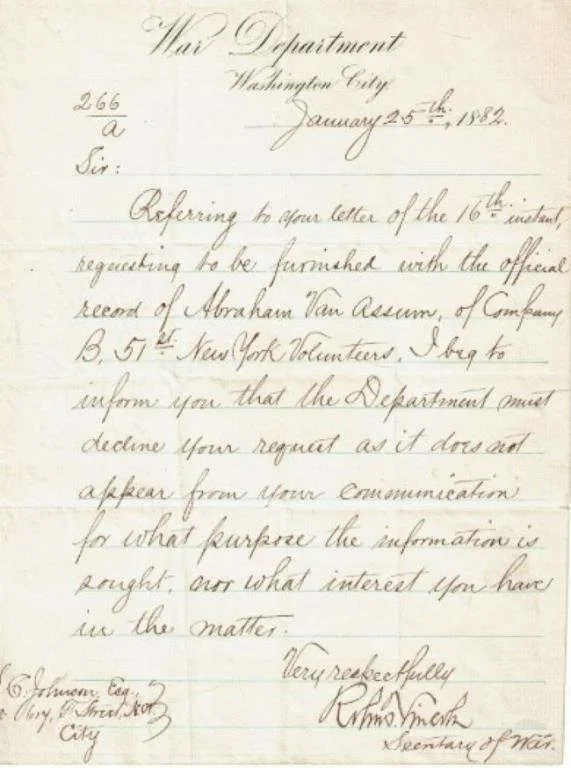 War Department
Washington City
January 25th, 1882.
266
A
Sir:
Referring to your letter of the 16th instant,
requesting to be furnished with the official
record of Abraham Van Assum, of Company
B, 51st New York Volunteers, I beg to
inform you that the Department must
decline your request as it does not
appear from your communication
for what purpose the information is
sought, nor what interest you have
in the matter.
Very respectfully
Robt. Lincoln
Secretary of War.
C. Johnson, Esq.,
F Street,
City